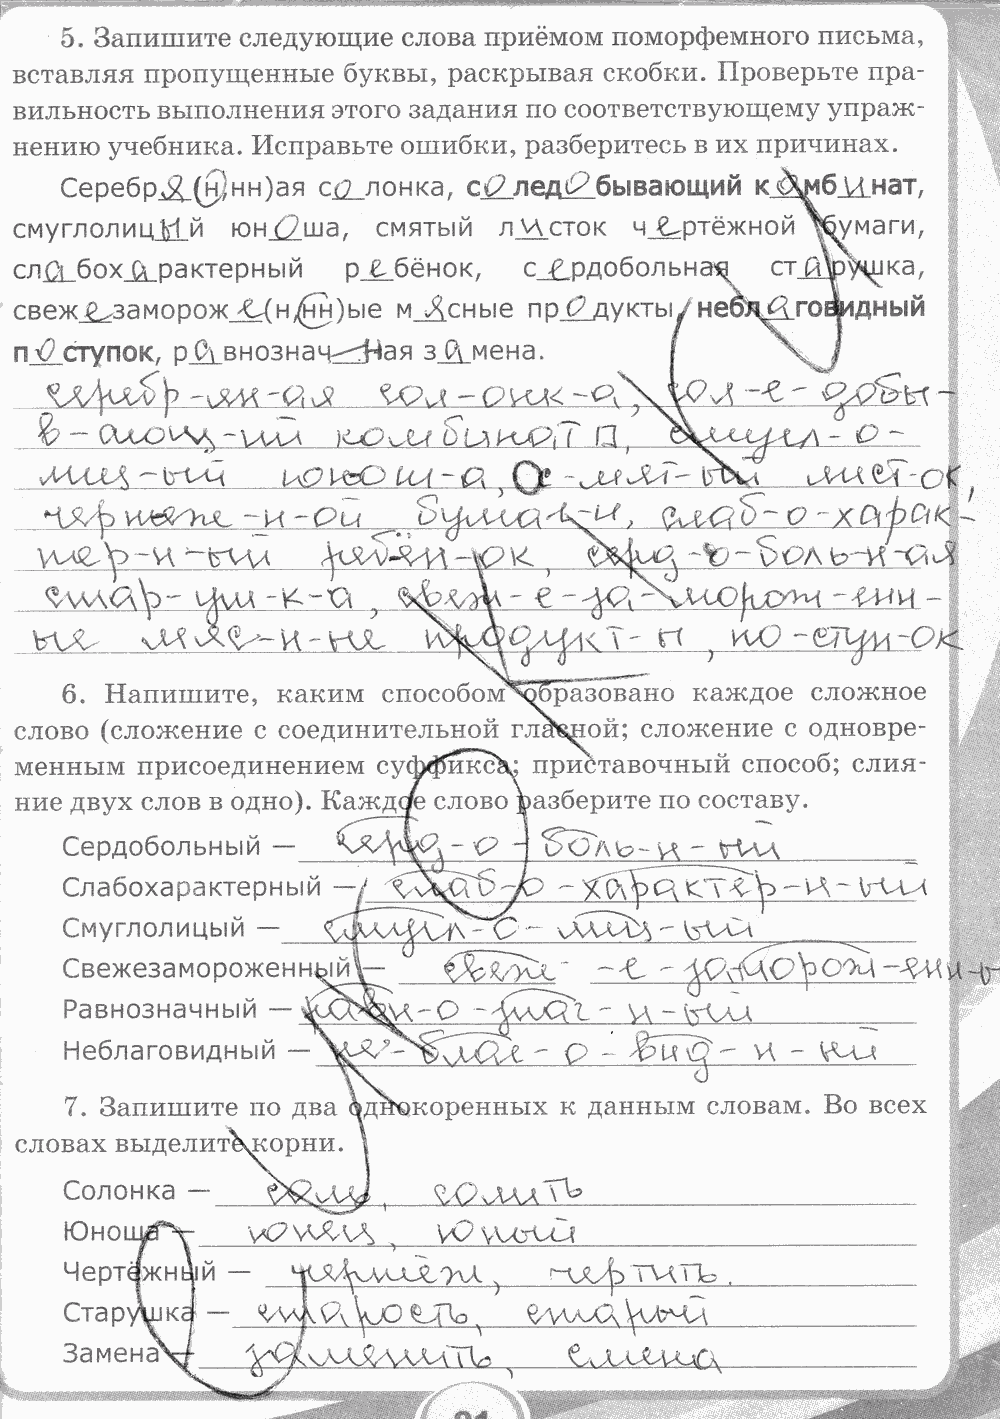 5. Запишите следующие слова приёмом поморфемного письма,
вставляя пропущенные буквы, раскрывая скобки. Проверьте пра-
вильность выполнения этого задания по соответствующему упраж-
нению учебника. Исправьте ошибки, разберитесь в их причинах.
Серебря(н,нн)ая солонка, соледобывающий комбинат,
смуглолицый юноша, смятый листок чертёжной бумаги,
слабохарактерный ребёнок, сердобольная старушка,
свежезамороже(н,нн)ые мясные продукты, неблаговидный
поступок, равнозначная замена.
серебр-ян-ая сол-онк-а, сол-е-добы-
в-ающ-ий комбинат, смугл-о-
лиц-ый юнош-а, с-мят-ый лист-ок,
чертеж-н-ой бумаг-и, слаб-о-харак-
тер-н-ый ребён-ок, серд-о-боль-н-ая
стар-уш-к-а, свеж-е-за-морож-енн-
ые мяс-н-ые продукт-ы, по-ступ-ок
6. Напишите, каким способом образовано каждое сложное
слово (сложение с соединительной гласной; сложение с одновре-
менным присоединением суффикса; приставочный способ; слия-
ние двух слов в одно). Каждое слово разберите по составу.
Сердобольный — серд-о-боль-н-ый
Слабохарактерный — слаб-о-характер-н-ый
Смуглолицый — смугл-о-лиц-ый
Свежезамороженный — свеж-е-заморож-енн-ы
Равнозначный — равн-о-знач-н-ый
Неблаговидный — не-благ-о-вид-н-ый
7. Запишите по два однокоренных к данным словам. Во всех
словах выделите корни.
Солонка — соль, солить
Юноша — юнец, юный
Чертёжный — чертёж, чертить.
Старушка — старость, старый
Замена — заменить, смена
21